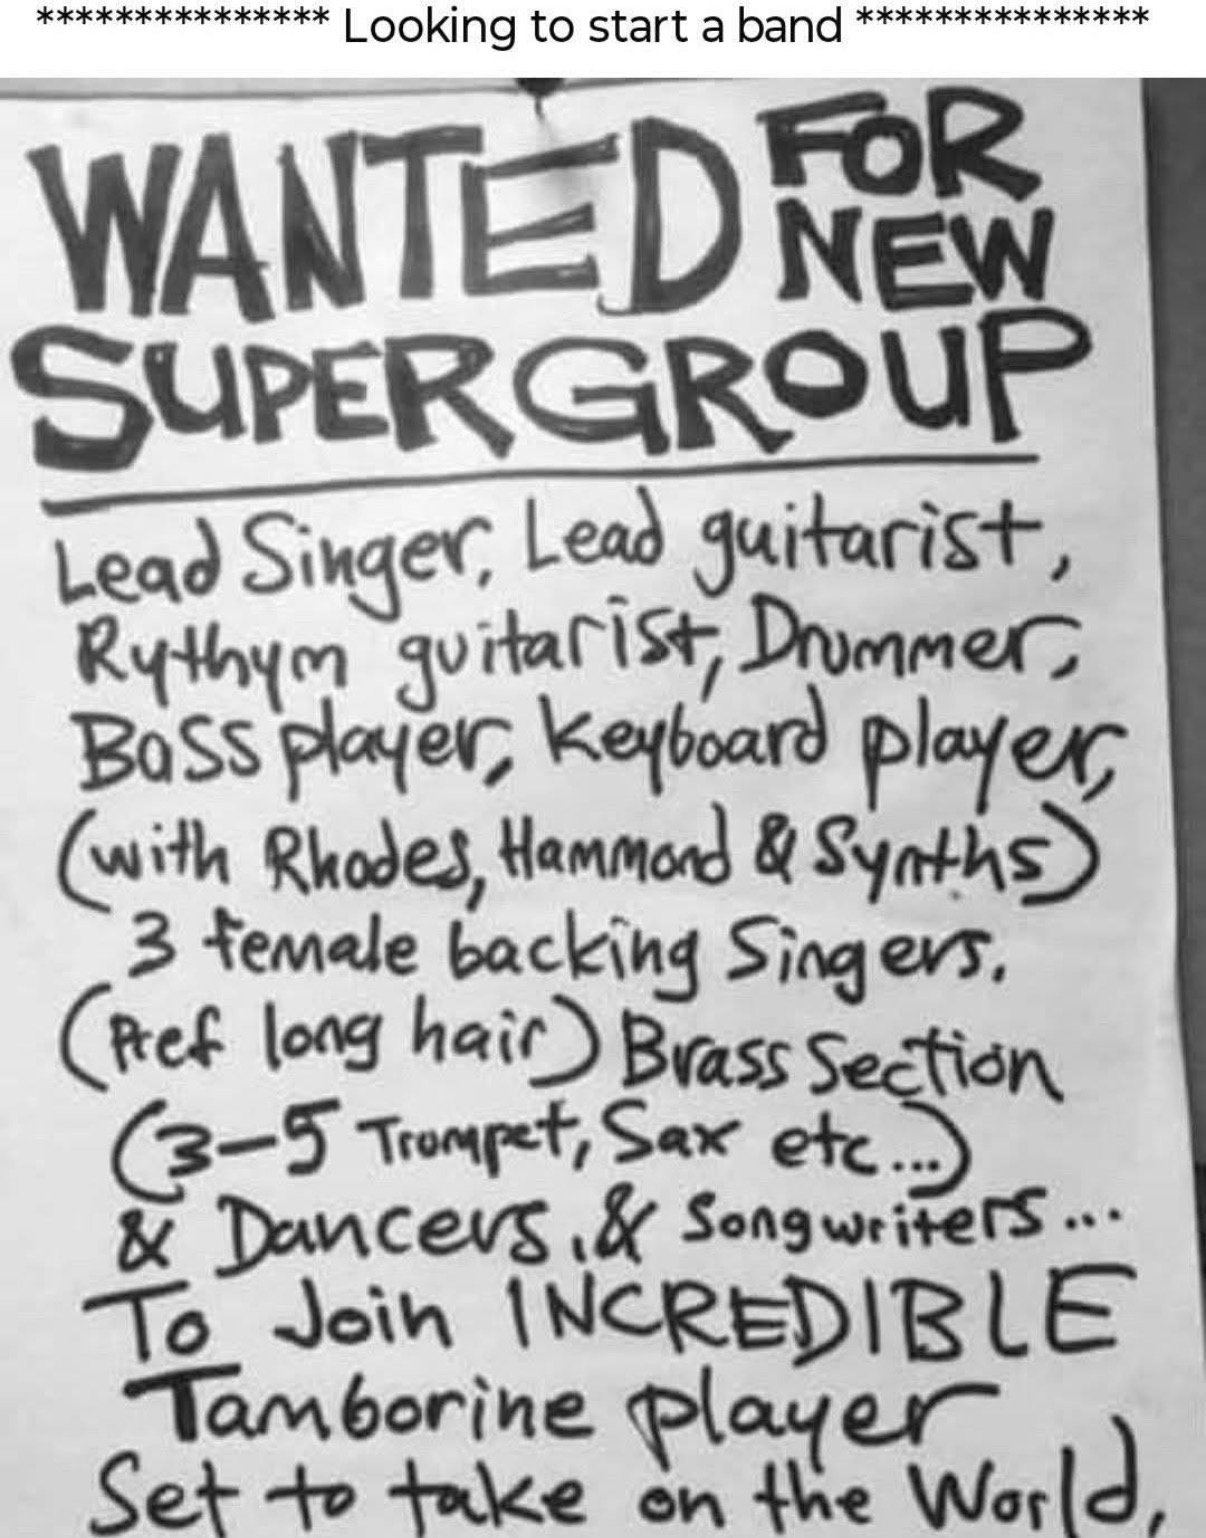 *************** Looking to start a band ***************
WANTED FOR
NEW
SUPERGROUP
Lead Singer, Lead guitarist,
Rythym guitarist, Drummer,
Bass player, keyboard player,
(with Rhodes, Hammond & Synths)
3 female backing Singers.
(Pref long hair) Brass Section
(3-5 Trumpet, Sax etc...)
& Dancers, & Songwriters...
To Join INCREDIBLE
Tamborine player
Set to take on the World.